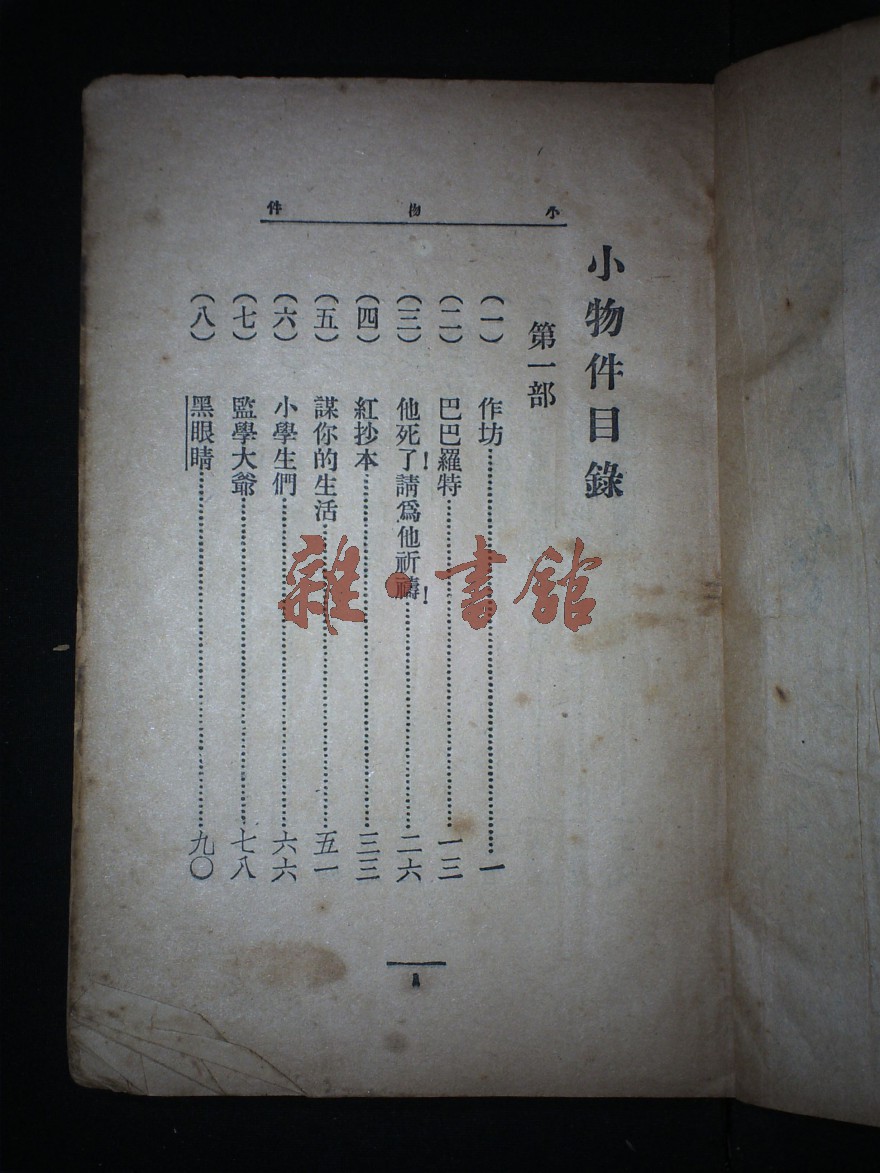 小物件
小物件目錄
第一部
(一) 作坊……………………一
(二) 巴巴羅特……………………一三
(三) 他死了！請爲他祈禱！……………………二六
(四) 紅抄本……………………三三
(五) 謀你的生活……………………五一
(六) 小學生們……………………六六
(七) 監學大爺……………………七八
(八) 黑眼睛……………………九〇
雜·書館